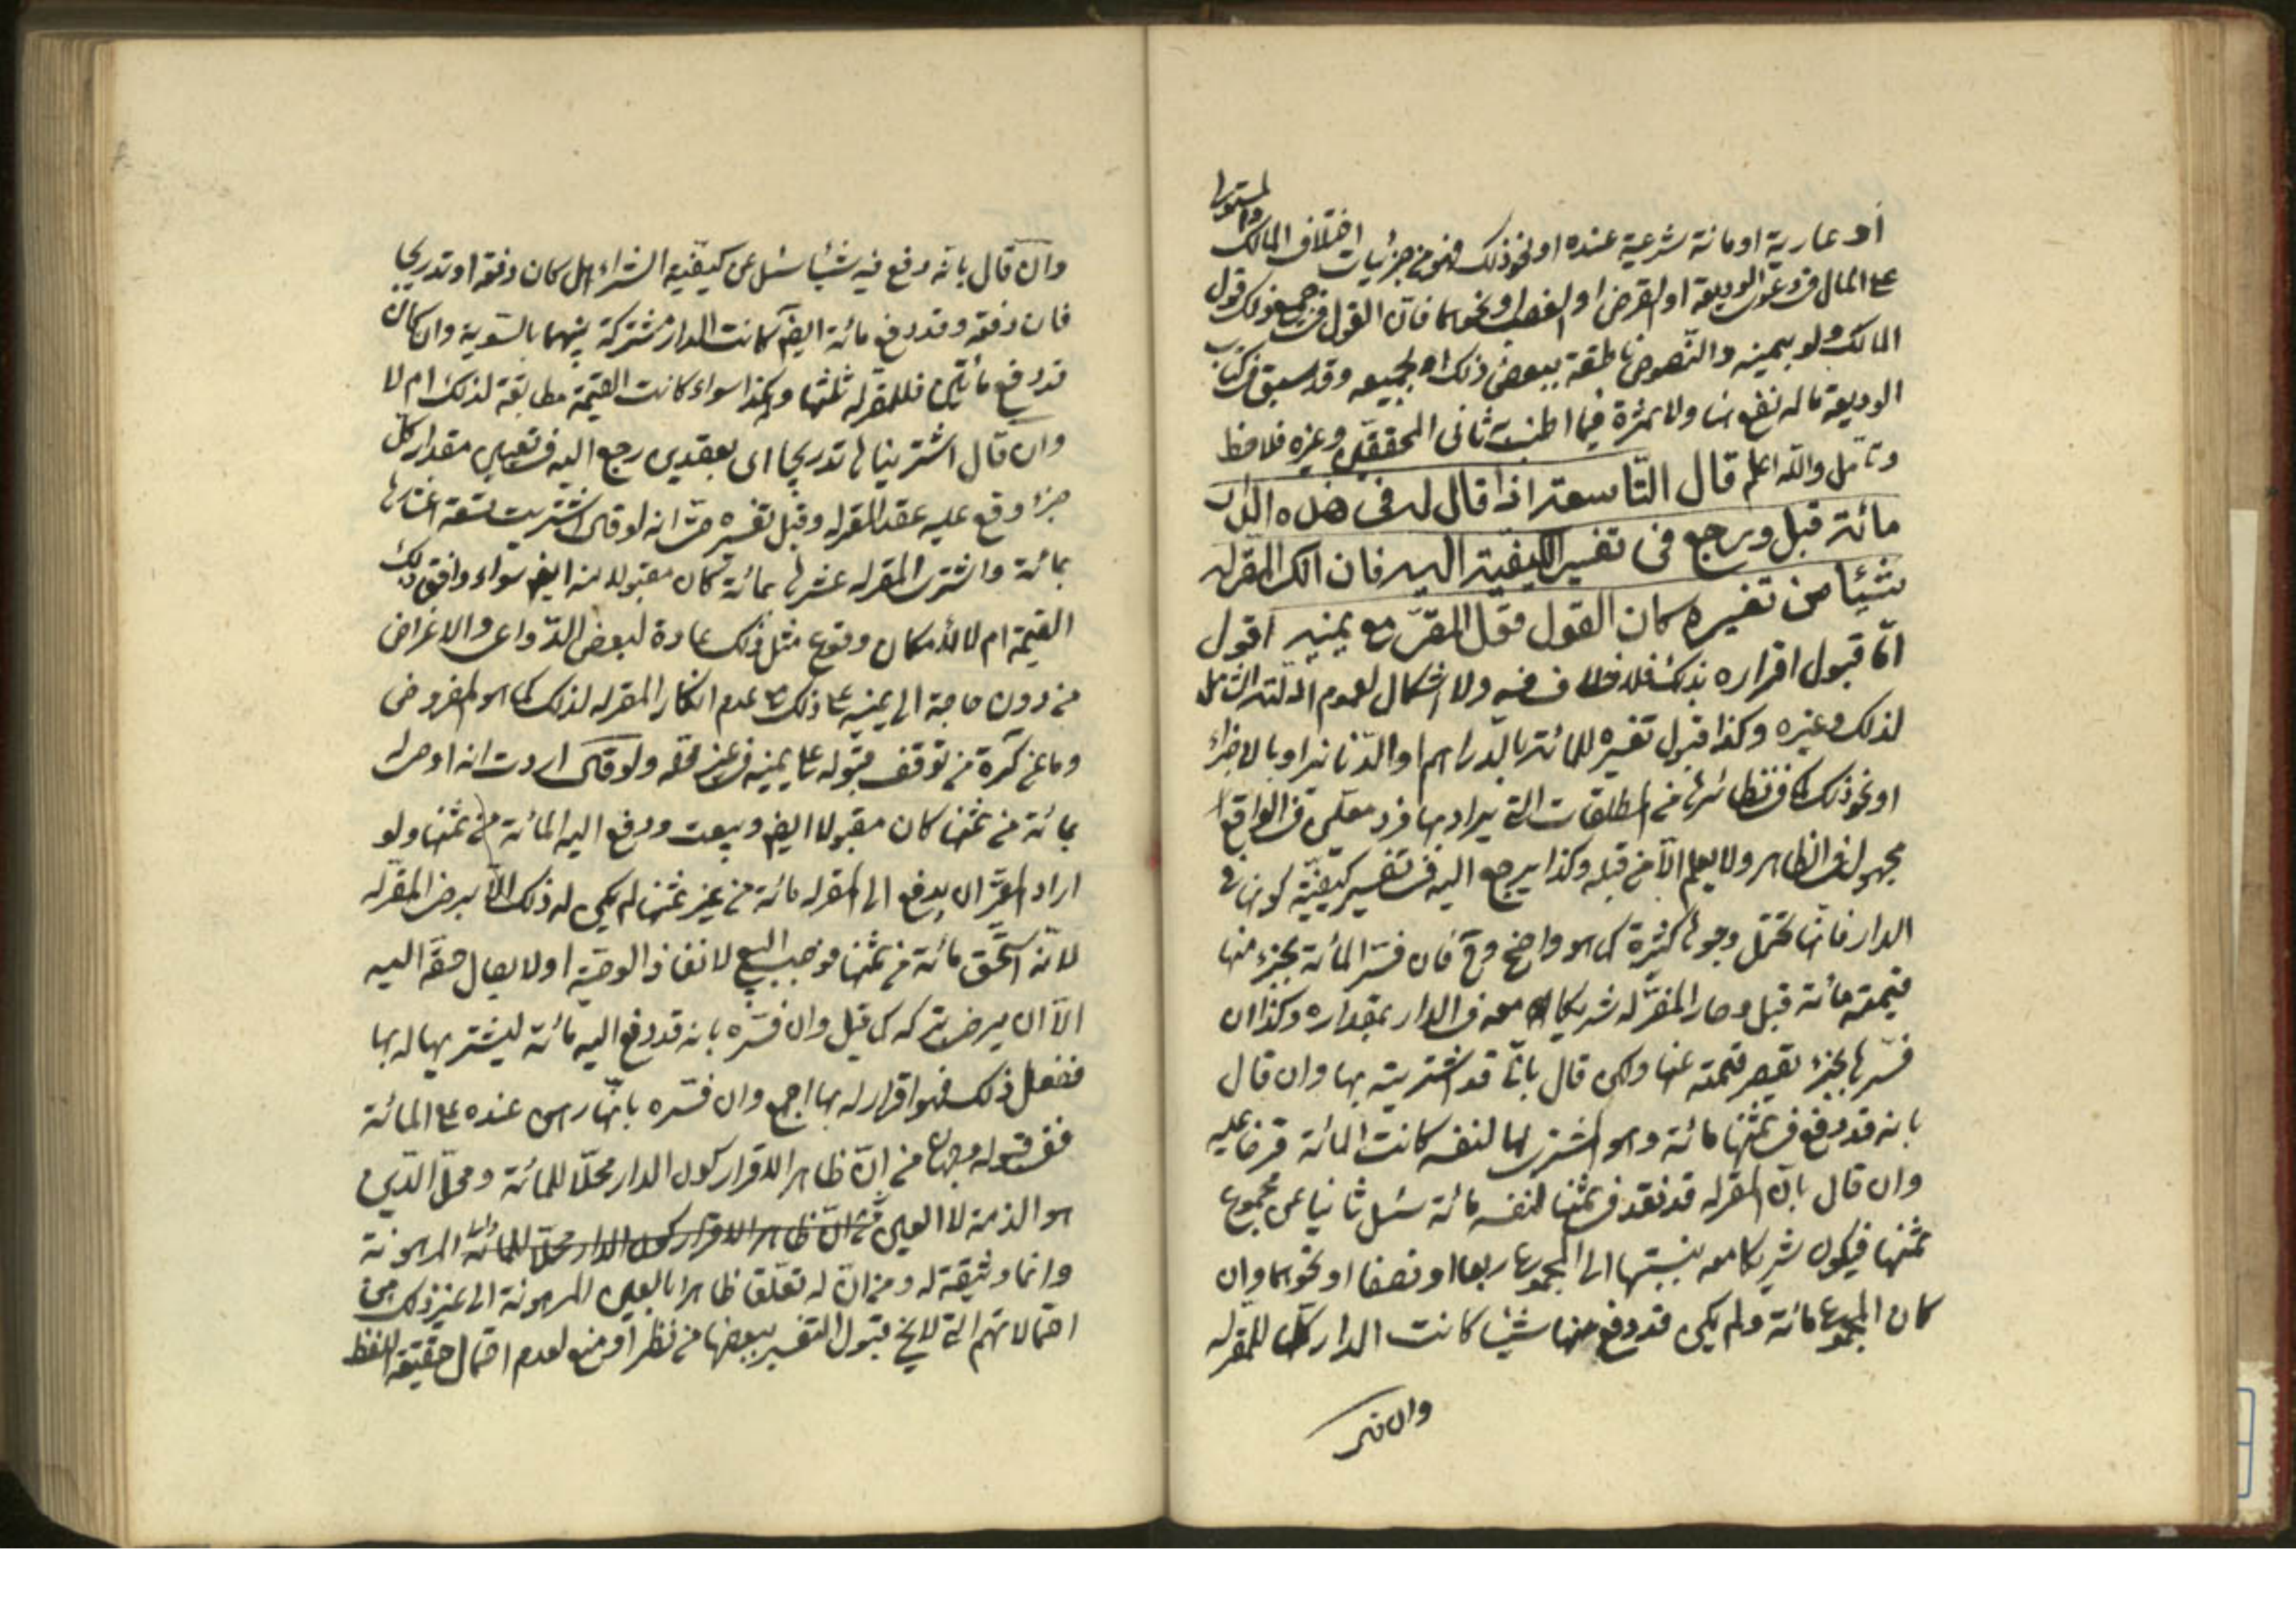 أو عارية او مانة شرعية عنده او نحو ذلك فهو من جزئيات اختلاف المالك والمستولى
على المال في دعوى الوديعة او القرض او الغصب او نحوهما فان القول في جميع ذلك قول
المالك ولو بيمينه والنصوص ناطقة ببعض ذلك او بجميعه وقد سبق في كتاب
الوديعة ماله نفع هنا ولا ثمرة فيما اطنب ثانى المحققين وغيره فلاحظ
وتامل والله اعلم قال التاسعة اذا قال له في هذه الدار
مائة قبل ويرجع في تفسير الكيفية اليه فان انكر المقر له
شيئا من تفسيره كان القول قول المقر مع يمينه اقول
امّا قبول اقراره بذلك فلا خلاف فيه ولا اشكال لعموم الادلة الشامل
لذلك وغيره وكذا قبول تفسيره للمائة بالدراهم او الدنانير او بالاجزاء
او نحو ذلك كما في نظائرها من المطلقات التي يراد بها فرد معين في الواقع
مجهول في الظاهر ولا يعلم الا من قبله وكذا يرجع اليه في تفسير كيفية كونها في
الدار فانها تحتمل وجوها كثيرة كما هو واضح وح فان فسر المائة بجزء منها
قيمته مائة قبل وصار المقر له شريكا معه في الدار بمقداره وكذا ان
فسرها بجزء تقصر قيمته عنها ولكن قال بانه قد اشتريته بها وان قال
بانه قد دفع في ثمنها مائة وهو اشترى لها لنفسه كانت المائة قرضا عليه
وان قال بان المقر له قد نقد في ثمنها لنفسه مائة سئل ثانيا عن مجموع
ثمنها فيكون شريكا معه بنسبتها الى المجموع ربعا او نصفا او نحوهما وان
كان المجموع مائة ولم يكن قد دفع منها شيئا كانت الدار كلها للمقر له
وان قال بانه دفع فيه شيئا سئل عن كيفية الشراء هل كان دفعة او تدريجا
فان دفعة وقد دفع مائة ايضا كانت الدار مشتركة بينهما بالسوية وان كان
قد دفع مأتين فللمقر له ثلثها وهكذا سواء كانت القيمة مطابقة لذلك ام لا
وان قال اشتريناها تدريجا اى بعقدين رجع اليه في تعيين مقدار كل
جزء وقع عليه عقد المقر له وقبل تفسيره حتى انه لو قال اشتريت تسعة اعشارها
بمائة واشترى المقر له عشرها بمائة كان مقبولا منه ايضا سواء وافق ذلك
القيمة ام لا لامكان وقوع مثل ذلك عادة لبعض الدواعى والاغراض
من دون حاجة الى يمينه على ذلك مع عدم انكار المقر له لذلك كما هو المفروض
وما عن كرة من توقف قبوله على يمينه في غير محله ولو قال اردت انه اوصى له
بمائة من ثمنها كان مقبولا ايضا وبيعت ودفع اليه المائة من ثمنها ولو
اراد المقر ان يدفع الى المقر له مائة من غير ثمنها لم يكن له ذلك الا برضى المقر له
لانه استحق مائة من ثمنها فوجب البيع لانفاذ الوصية اولا يصال حقه اليه
الا ان يرضى بتركه كما قيل وان فسره بانه قد دفع اليه مائة ليشتريها له بها
ففعل ذلك فهو اقرار له بها اجمع وان فسره بانها رهن عنده على المائة
ففي قبوله وجهان من ان ظاهر الاقرار كون الدار محلا للمائة ومحل الدين
هو الذمة لا العين ثم ان ظاهر الاقرار كون الدار محلا للمائة المرهونة
وانما وثيقة له ومن ان له تعلق ظاهرا بالعين المرهونة الى غير ذلك من
احتمالاتهم التي لا يخ قبول التفسير ببعضها من نظر او منع لعدم احتمال حقيقة اللفظ